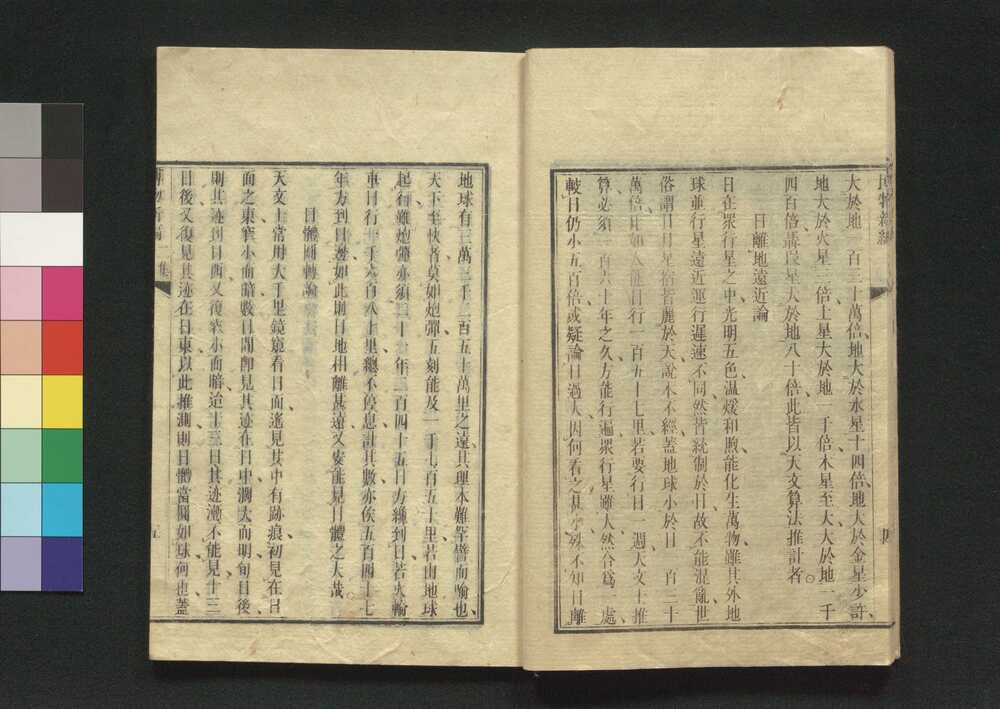 博物新編
大於地一百三十萬倍、地大於水星十四倍、地大於金星少許、
地大於火星三倍、土星大於地一千倍、木星至大、大於地一千
四百倍、 星大於地八十倍、此皆以天文算法推計者。
日離地遠近論
日在眾行星之中、光明五色、温煖和煦、能化生萬物、雖其外地
球並行星遠近運行、遲速不同、然皆統制於日、故不能混亂、世
俗謂日月星宿皆麗於天、說本不經、蓋地球小於日一百三十
萬倍、比如人能日行一百五十七里、若要行日一週、天文士推
算必須一百六十年之久、方能行遍、眾行星雖人然合為一處、
較日仍小五百倍、或疑論日過大、因何看之甚小、殊不知日離
四
地球有三萬三千二百五十萬里之遠、其理本難罕譬而喻也、
天下至快者莫如炮彈、五刻能及一千七百五十里、若由地球
起行、雖炮彈亦須二十 年三百四十五日方繞到日、若火輪
車日行一千六百八十里、總不停息、計其數亦俟五百四十七
年方到日邊、如此則日地相離甚遠、又安能見日體之大哉。
日體圓轉論
天文士常用大千里鏡窺看日面、遙見其中有跡痕、初見在日
面之東、窄小而暗、數日間即見其迹在日中、濶大而明、旬日後、
則其迹到日西、又復窄小而暗、迨十三日、其迹漸不能見、十三
日後、又復見其迹在日東、以此推測、則日體當圓如球、何也、蓋
博物新編 一集
五